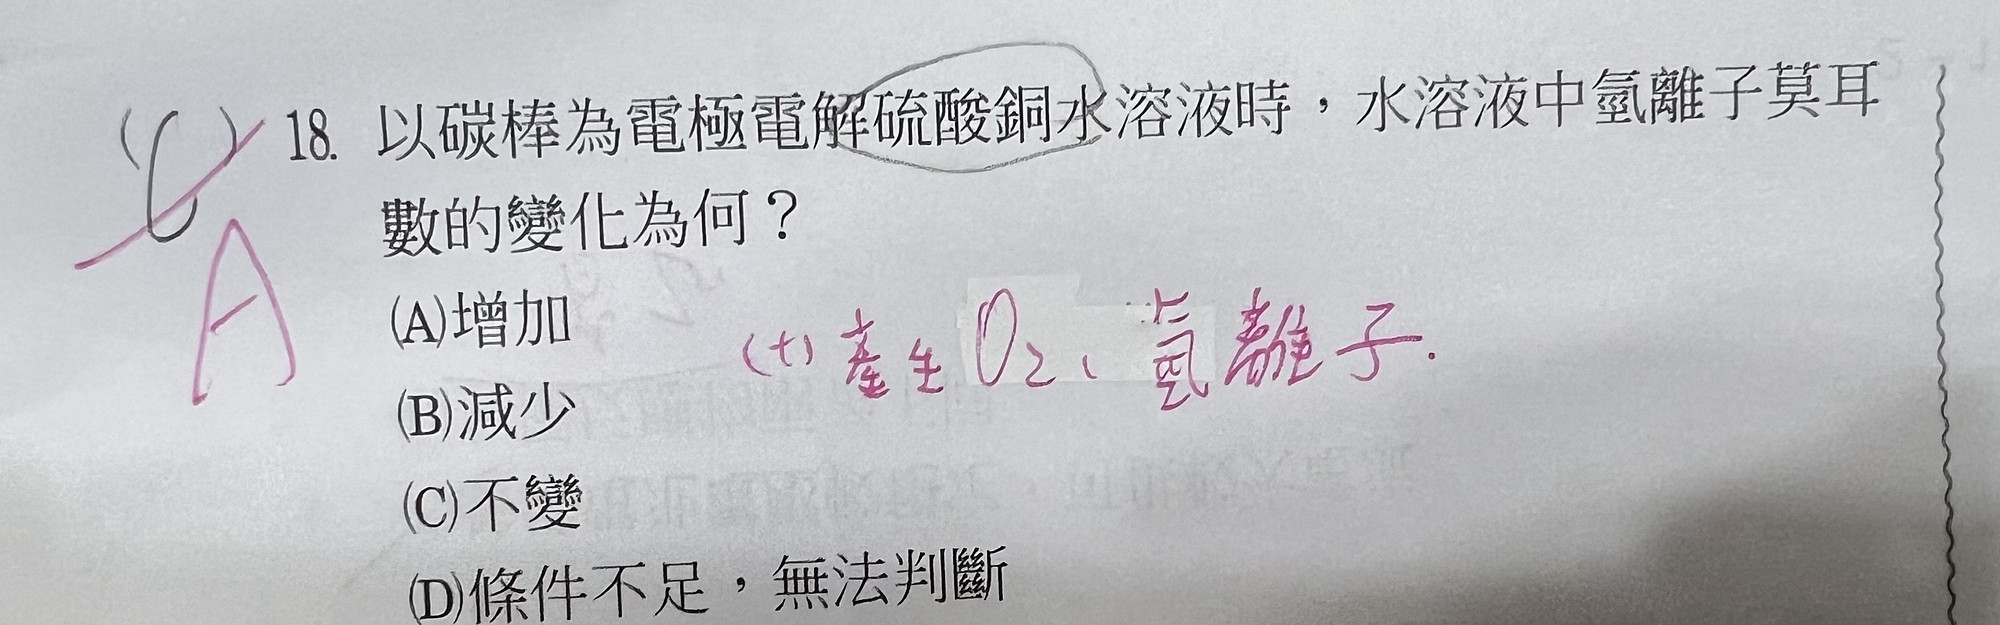 (C) 18. 以碳棒為電極電解硫酸銅水溶液時，水溶液中氫離子莫耳
數的變化為何？
A
(A)增加
(+)產生O₂、氫離子.
(B)減少
(C)不變
(D)條件不足，無法判斷